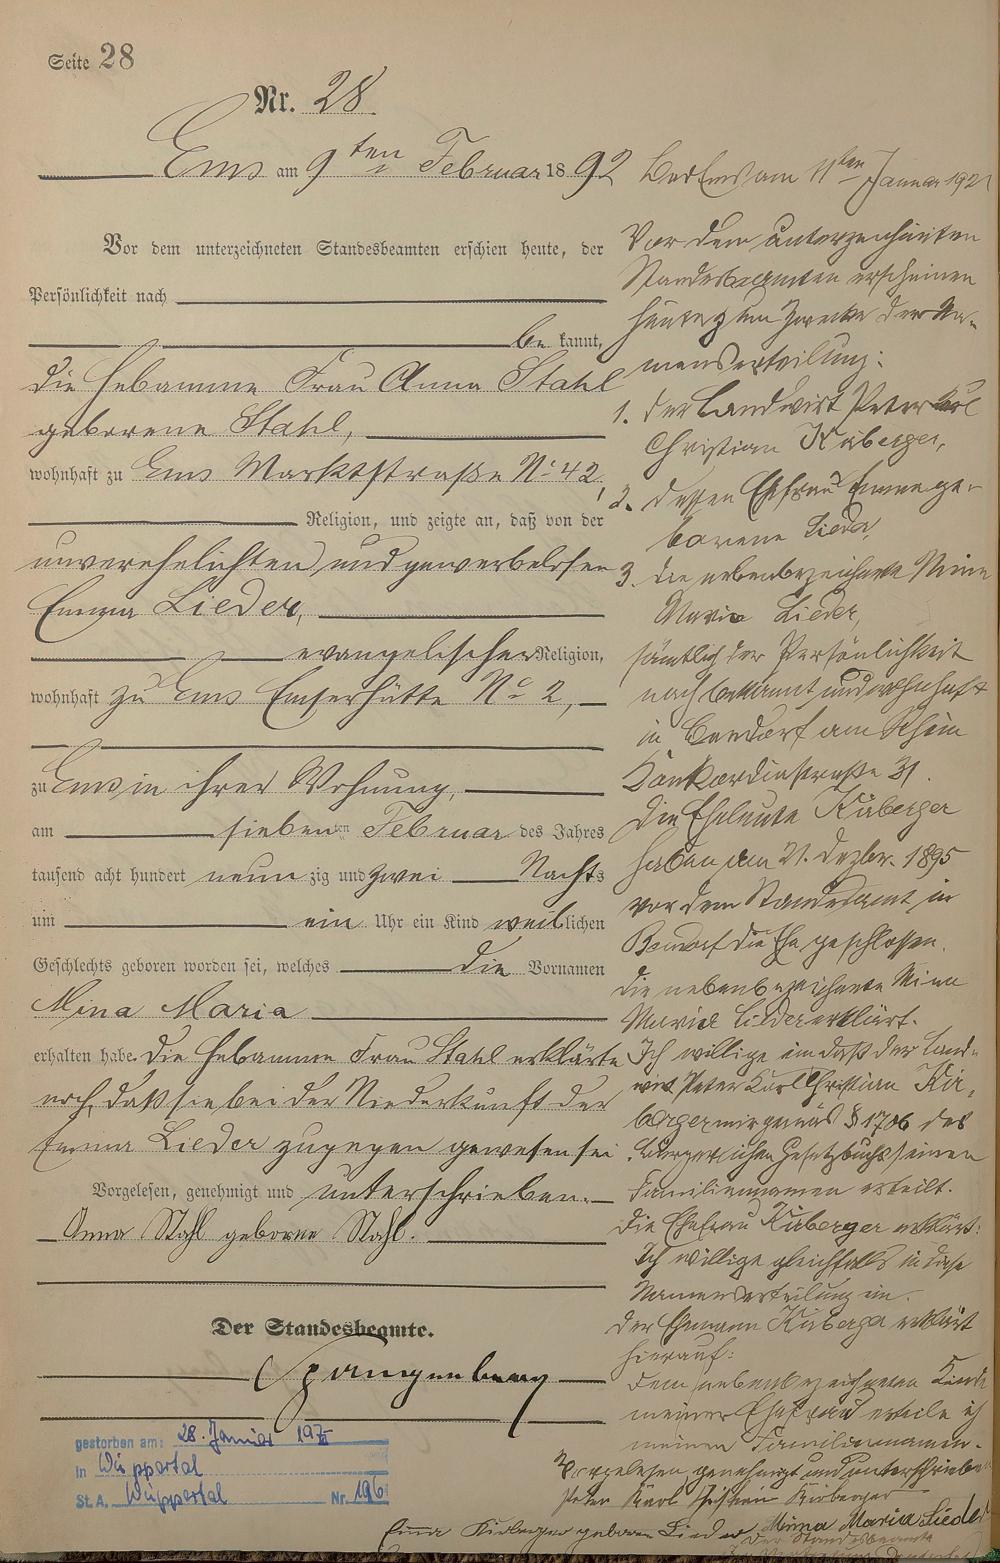 Seite 28
Nr. 28
Ems am 9ten Februar 1892
Vor dem unterzeichneten Standesbeamten erschien heute, der
Persönlichkeit nach
be kannt,
die Hebamme Frau Anna Stahl
geborene Stahl,
wohnhaft zu Ems Marktstraße No 42,
Religion, und zeigte an, daß von der
unverehelichten und gewerbelosen
Emma Lieder,
evangelischer Religion,
wohnhaft zu Ems Emserhütte No 2,
zu Ems in ihrer Wohnung,
am siebenten Februar des Jahres
tausend acht hundert neunzig und zwei Nachts
um ein Uhr ein Kind weiblichen
Geschlechts geboren worden sei, welches die Vornamen
Mina Maria
erhalten habe. Die Hebamme Frau Stahl erklärte
noch, daß sie bei der Niederkunft der
Emma Lieder zugegen gewesen sei
Vorgelesen, genehmigt und unterschrieben.
Anna Stahl geborne Stahl.
Der Standesbeamte.
Spangenberg
gestorben am: 28. Januar
in Wuppertal
St.A. Wuppertal Nr. 196
Bad Ems am 11ten Januar
Vor dem unterzeichneten
Standesbeamten erscheinen
heute zum Zwecke der Na-
menserteilung:
1. der Landwirt Peter Karl
Christian Kirberger,
2. dessen Ehefrau Emma ge-
borene Lieder,
3. die nebenbezeichnete Mina
Maria Lieder,
sämtlich der Persönlichkeit
nach bekannt und wohnhaft
in Bendorf am Rhein
Konkordiastraße 31.
Die Eheleute Kirberger
haben am 21. Dezbr. 1895
vor dem Standesamt in
Bendorf die Ehe geschlossen.
Die nebenbezeichnete Mina
Maria Lieder erklärt:
Ich willige ein daß der Land-
wirt Peter Karl Christian Kir-
berger mir gemäß § 1706 des
Bürgerlichen Gesetzbuchs seinen
Familiennamen erteilt.
Die Ehefrau Kirberger erklärt:
Ich willige gleichfalls in diese
Namenserteilung ein.
Der Ehemann Kirberger erklärt
hierauf:
Dem nebenbezeichneten Kinde
meiner Ehefrau erteile ich
meinen Familiennamen.
Vorgelesen, genehmigt und unterschrieben
Peter Karl Christian Kirberger
Emma Kirberger geborene Lieder Minna Maria Lieder
Der Standesbeamte